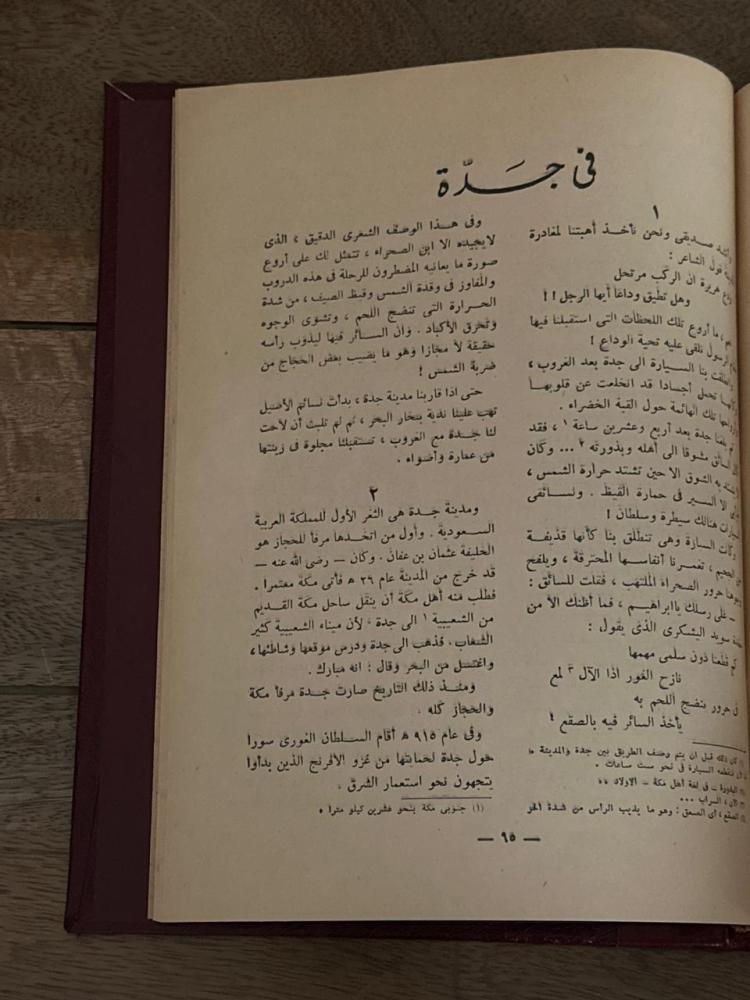 فى جدة
١
صديقى ونحن نأخذ أهبتنا لمغادرة
قول الشاعر :
هريرة ان الركب مرتحل
وهل تطيق وداعا أيها الرجل !!
ما أروع تلك اللحظات التى استقبلنا فيها
الرسول نلقى عليه تحية الوداع !
بنا السيارة الى جدة بعد الغروب ،
تحمل أجسادا قد انخلعت عن قلوبها
تلك الهائمة حول القبة الخضراء .
جدة بعد أربع وعشرين ساعة ١ ، فقد
مشوقا الى أهله وبذورته ٢ ... وكان
به الشوق الا حين تشتد حرارة الشمس ،
الا السير فى حمارة القيظ . ونسائقى
هنالك سيطرة وسلطان !
السيارة وهى تنطلق بنا كأنها قذيفة
تغمرنا أنفاسها المحترقة ، ويلفح
حرور الصحراء الملتهب ، فقلت للسائق :
ـ على رسلك ياابراهيم ، فما أظنك الا من
سويد اليشكرى الذى يقول :
كم قطعنا دون سلمى مهمها
نازح الغور اذا الآل ٣ لمع
فى حرور ينضج اللحم به
يأخذ السائر فيه بالصقع !
كان ذلك قبل أن يتم رصف الطريق بين جدة والمدينة
السيارة فى نحو ست ساعات .
فى لغة أهل مكة ـ الاولاد
السراب ...
الصقع ، أى الصعق : وهو ما يذيب الرأس من شدة الحر
وفى هذا الوصف الشعرى الدقيق ، الذى
لايجيده الا ابن الصحراء ، تتمثل لك على أروع
صورة ما يعانيه المضطرون للرحلة فى هذه الدروب
والمفاوز فى وقدة الشمس وقيظ الصيف ، من شدة
الحرارة التى تنضج اللحم ، وتشوى الوجوه
وتحرق الأكباد . وان السائر فيها ليذوب رأسه
حقيقة لا مجازا وهو ما يصيب بعض الحجاج من
ضربة الشمس !
حتى اذا قاربنا مدينة جدة ، بدأت نسائم الأصيل
تهب علينا ندية ببخار البحر ، ثم لم تلبث أن لاحت
لنا جدة مع الغروب ، تستقبلنا مجلوة فى زينتها
من عمارة وأضواء .
٢
ومدينة جدة هى الثغر الأول للمملكة العربية
السعودية . وأول من اتخدها مرفأ للحجاز هو
الخليفة عثمان بن عفان . وكان ـ رضى الله عنه ـ
قد خرج من المدينة عام ٢٦ ه فأتى مكة معتمرا .
فطلب منه أهل مكة أن ينقل ساحل مكة القديم
من الشعيبية ١ الى جدة ، لأن ميناء الشعيبية كثير
الشعاب . فذهب الى جدة ودرس موقعها وشاطئها ،
واغتسل من البحر وقال : انه مبارك .
ومنذ ذلك التاريخ صارت جدة مرفأ مكة
والحجاز كله .
وفى عام ٩١٥ ه أقام السلطان الغورى سورا
حول جدة لحمايتها من غزو الافرنج الذين بدأوا
يتجهون نحو استعمار الشرق .
(١) جنوبى مكة بنحو عشرين كيلو مترا .
ـ ٩٥ ـ